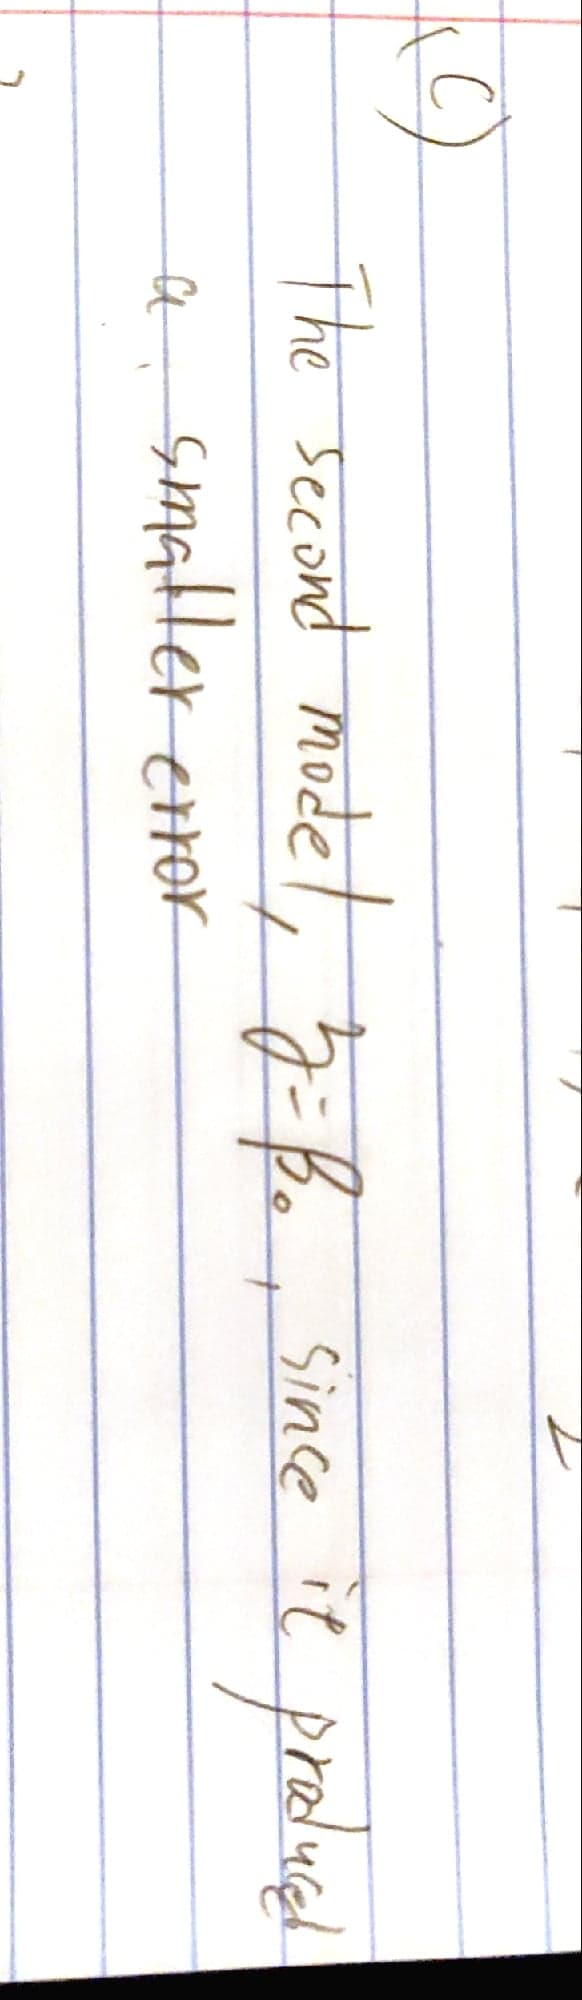 (C)
The second model, y = β₀, since it produced
a smaller error